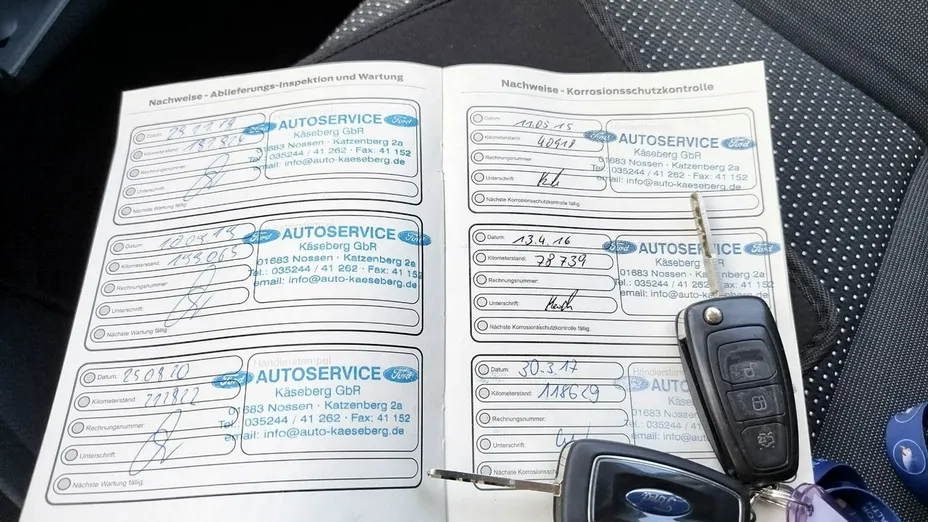 Nachweise - Ablieferungs-Inspektion und Wartung
Datum:
Ford AUTOSERVICE Ford
Käseberg GbR
Kilometerstand:
01683 Nossen · Katzenberg 2a
Rechnungsnummer:
Tel.: 035244 / 41 262 · Fax: 41 152
Unterschrift:
email: info@auto-kaeseberg.de
Nächste Wartung fällig:
Datum:
Ford AUTOSERVICE Ford
Käseberg GbR
Kilometerstand:
01683 Nossen · Katzenberg 2a
Rechnungsnummer:
Tel.: 035244 / 41 262 · Fax: 41 152
Unterschrift:
email: info@auto-kaeseberg.de
Nächste Wartung fällig:
Händlerstempel
Datum: 25 09 20
Ford AUTOSERVICE Ford
Käseberg GbR
Kilometerstand:
01683 Nossen · Katzenberg 2a
Rechnungsnummer:
Tel.: 035244 / 41 262 · Fax: 41 152
Unterschrift:
email: info@auto-kaeseberg.de
Nächste Wartung fällig:
Nachweise - Korrosionsschutzkontrolle
Datum: 11.05.15
Ford AUTOSERVICE Ford
Kilometerstand: 40918
Käseberg GbR
01683 Nossen · Katzenberg 2a
Rechnungsnummer:
Tel.: 035244 / 41 262 · Fax: 41 152
Unterschrift:
email: info@auto-kaeseberg.de
Nächste Korrosionsschutzkontrolle fällig:
Datum: 13.4.16
Ford AUTOSERVICE
Kilometerstand: 78739
Käseberg
01683 Nossen
Rechnungsnummer:
Tel.: 035244 / 41
Unterschrift:
email: info@auto-kaeseberg
Nächste Korrosionsschutzkontrolle fällig:
Händlerstempel
Datum: 30.3.17
AUTOSERVICE
Kilometerstand: 118629
01683 Nossen
Rechnungsnummer:
Tel.: 035244
Unterschrift:
email: info@
Nächste
Ford